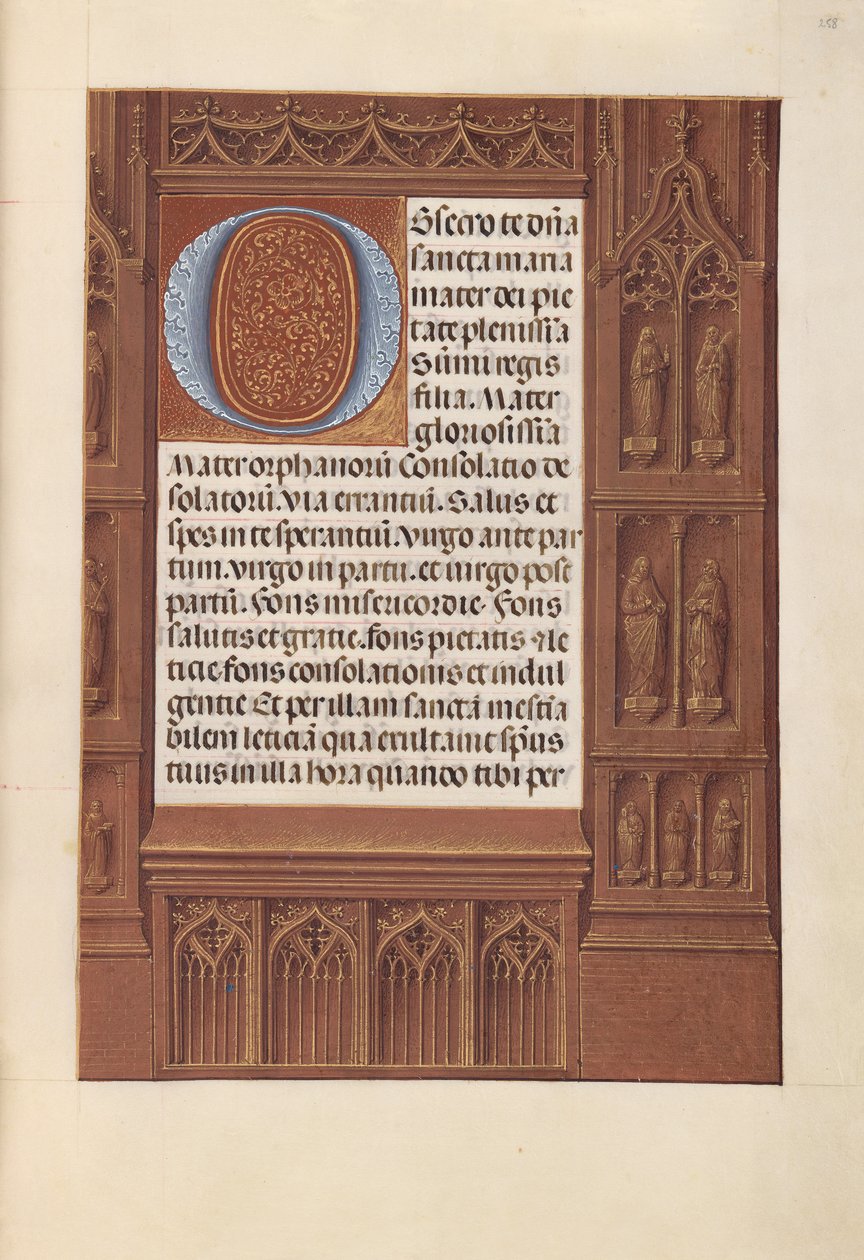 258
OBsecro te dña
sancta maria
mater dei pie
tate plenissĩa
Sũmi regis
filia. Mater
gloriosissĩa
Mater orphanorũ Consolatio de
solatorũ. via errantiũ. Salus et
spes in te sperantiũ. Virgo ante par
tum. virgo in partu. et uirgo post
partũ. Fons misericordie. Fons
salutis et gratie. fons pietatis ⁊ le
ticie. fons consolationis et indul
gentie Et per illam sanctã inestĩa
bilem leticiã qua exultauit spũs
tuus in illa hora quando tibi per